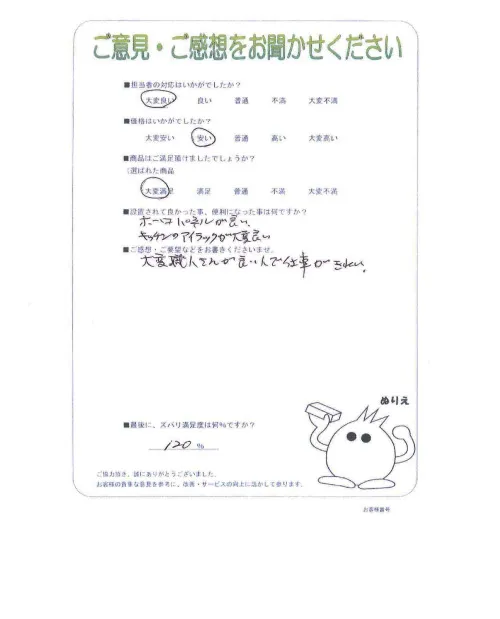 ご意見・ご感想をお聞かせください
■担当者の対応はいかがでしたか?
大変良い 良い 普通 不満 大変不満
■価格はいかがでしたか?
大変安い 安い 普通 高い 大変高い
■商品はご満足頂けましたでしょうか?
(選ばれた商品
大変満足 満足 普通 不満 大変不満
■設置されて良かった事、便利になった事は何ですか?
ホーローパネルが良い
キッチンのアイラックが大変良い
■ご感想・ご要望などをお書きくださいませ。
大変職人さんが良い人で仕事がきれい。
ぬりえ
■最後に、ズバリ満足度は何%ですか?
120 %
ご協力頂き、誠にありがとうございました。
お客様の貴重な意見を参考に、改善・サービスの向上に活かして参ります。
お客様番号